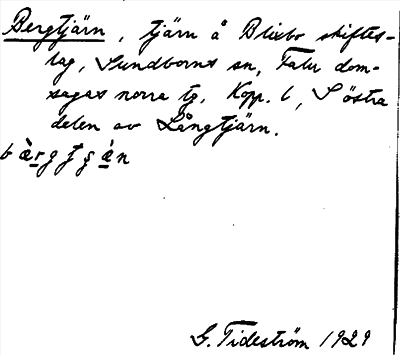 Bergtjärn, tjärn å Blixbo skiftes-
lag, Sundborns sn, Falu dom-
sagas norra tg, Kopp. l, S östra
delen av Långtjärn.
G. Tideström 1929